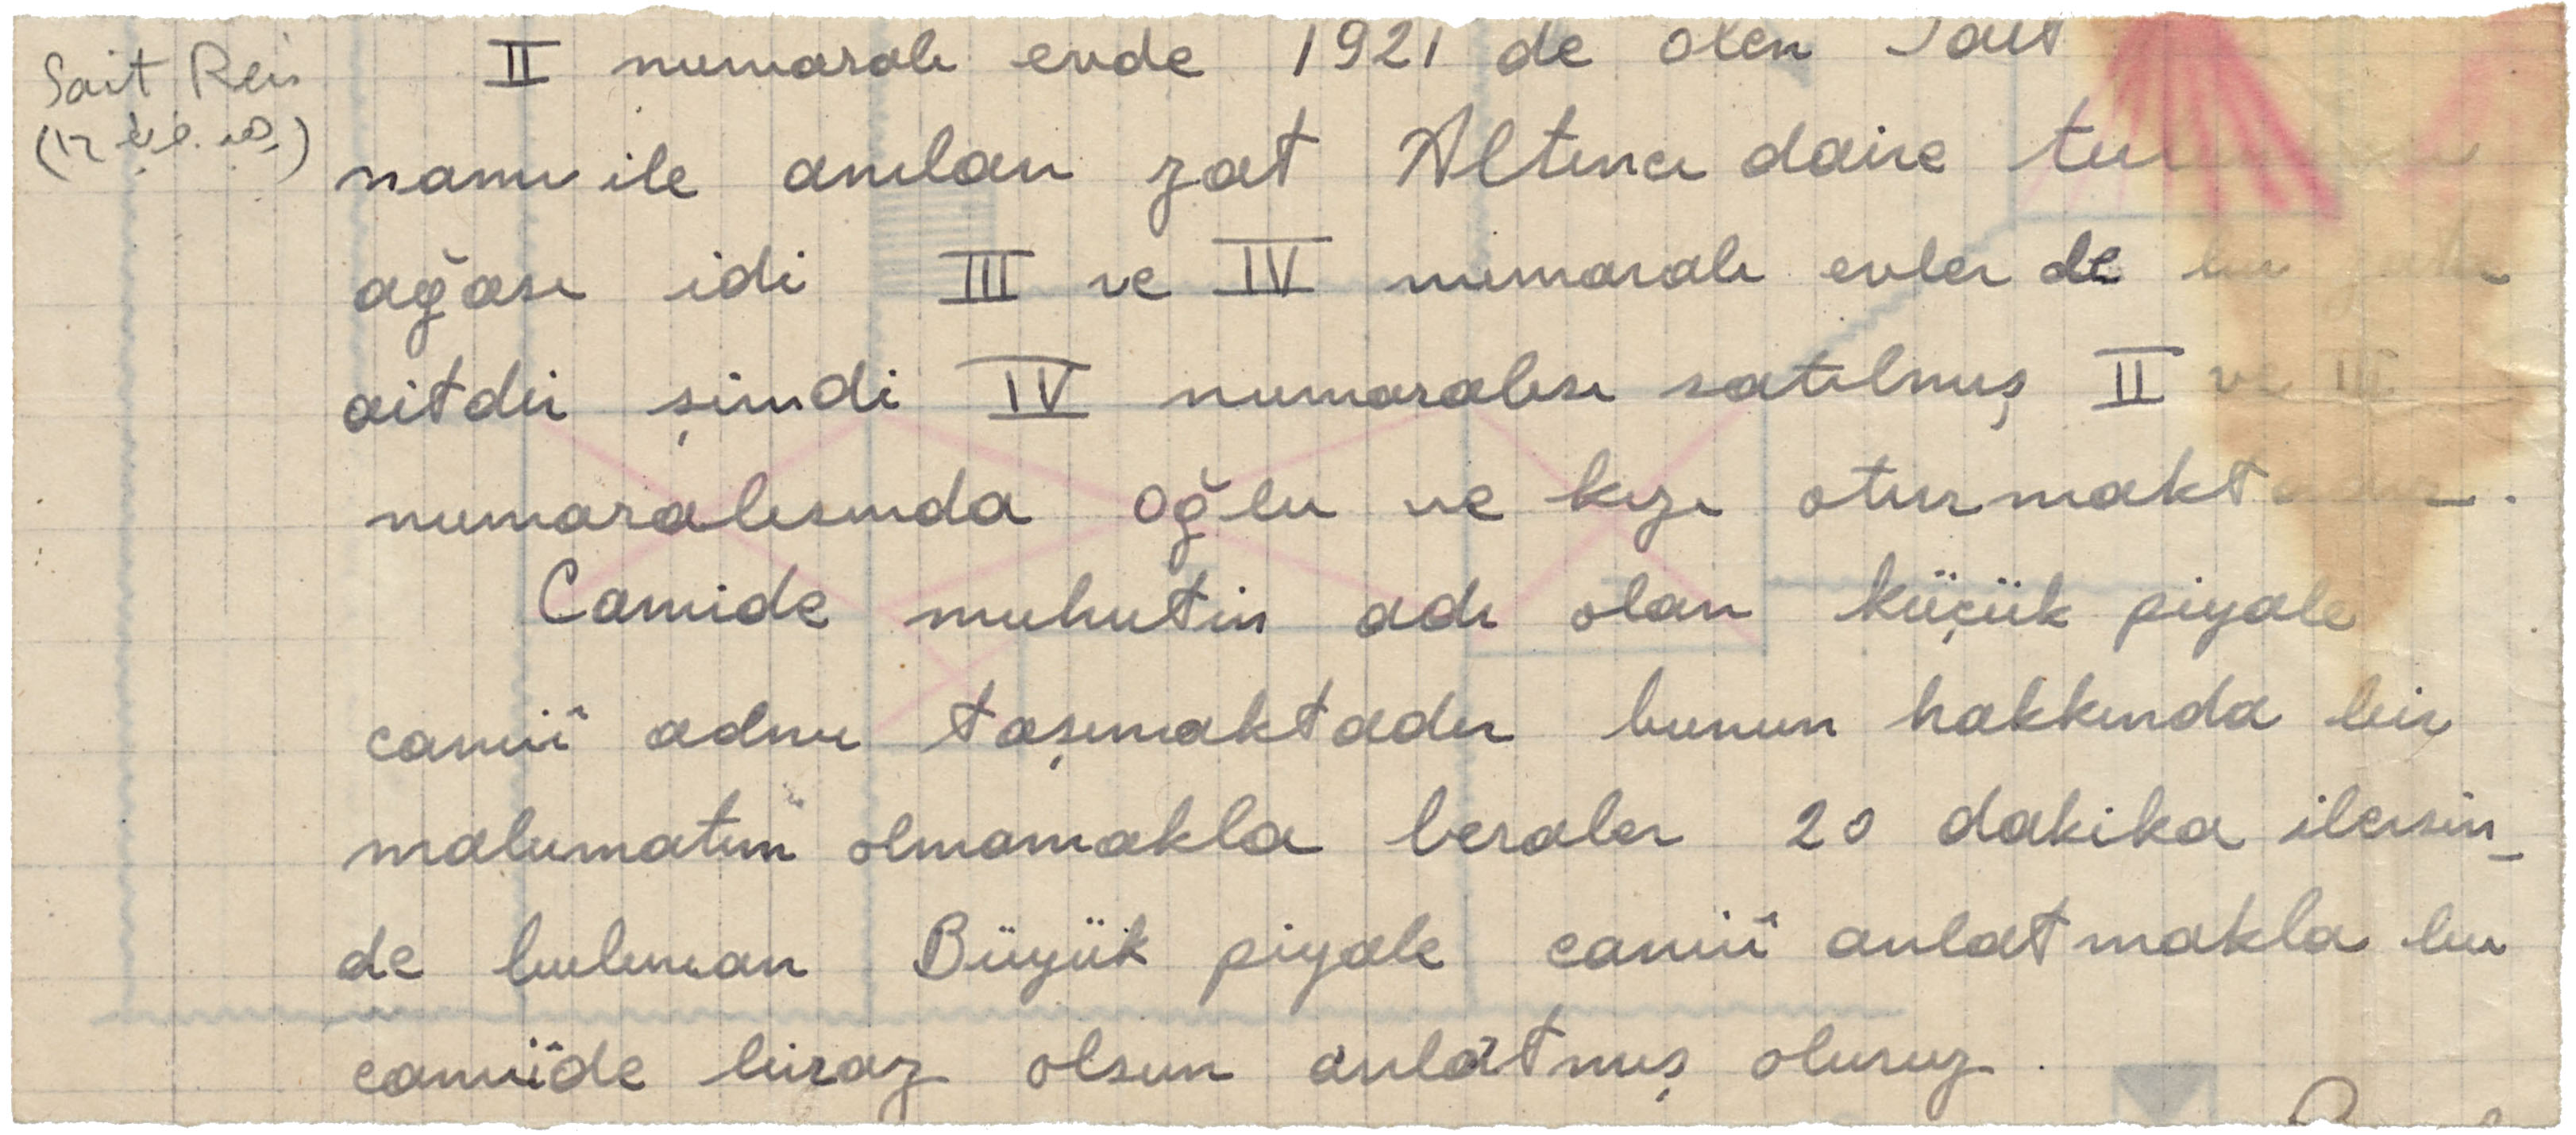 Sait Reis
II numaralı evde 1921 de ölen Sait
namı ile anılan zat Altıncı daire
ağası idi III ve IV numaralı evler de bu
aitdir şimdi IV numaralısı satılmış II ve III
numaralısında oğlu ve kızı oturmaktadır.
Camide muhutin adı olan küçük piyale
camiî adını taşımaktadır bunun hakkında bir
malumatım olmamakla beraber 20 dakika ilersin_
de bulunan Büyük piyale camiî anlatmakla bu
camiîde biraz olsun anlatmış oluruz.